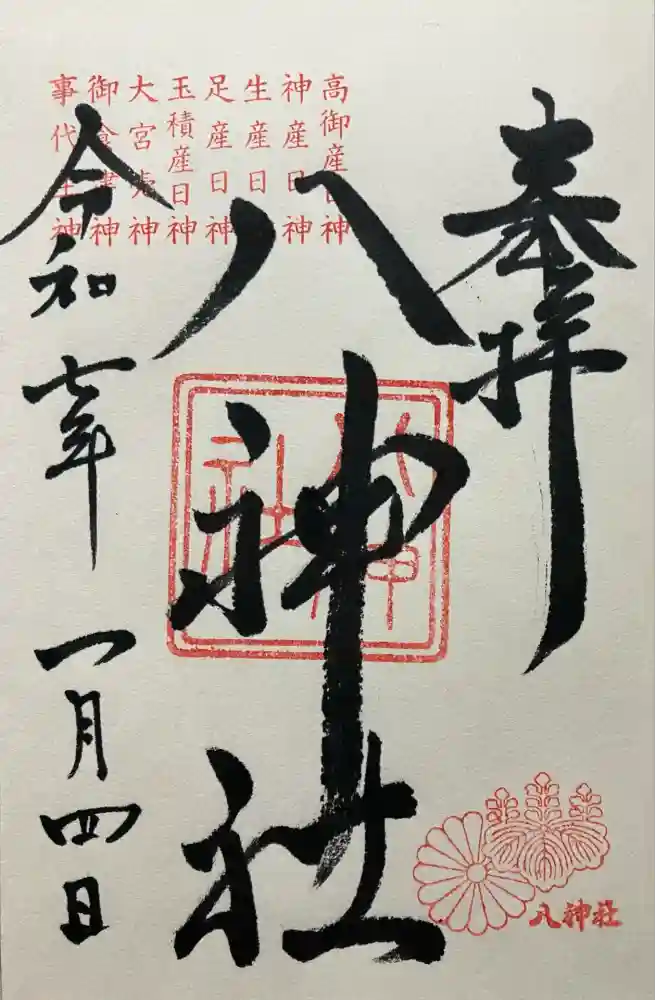 奉拝
高御産日神
神産日神
生産日神
足産日神
玉積産日神
大宮売神
御食津神
事代主神
八神社
八神社
令和七年
一月四日
八神社